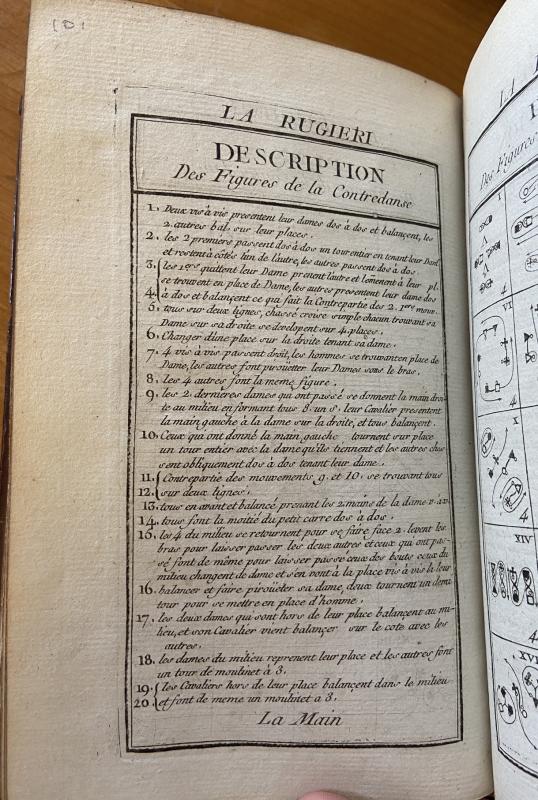 101
LA RUGIERI
DESCRIPTION
Des Figures de la Contredanse
1. Deux vis à vis presentent leur dames dos à dos et balançent, les
2. autres bal. sur leur places.
2. les 2 premiers passent dos à dos un tour entier en tenant leur Dame
et restent à cotés l'un de l'autre, les autres passent dos à dos.
3. les 1ers quittent leur Dame prenent l'autre et l'emenent à leur pl.
se trouvent en place de Dame, les autres presentent leur dame dos
4. à dos et balançent ce qui fait la Contrepartie des 2. 1ers mouv.
5. tous sur deux lignes, chassé croisé simple chacun trouvant sa
Dame sur sa droite se develloppent sur 4. places.
6. Changer d'une place sur la droite tenant sa dame.
7. 4 vis à vis passent droit, les hommes se trouvent en place de
Dame, les autres font pirouëtter leur Dames sous le bras.
8. les 4 autres font la meme figure.
9. les 2. dernieres dames qui ont passé se donnent la main droi-
te au milieu en formant tous 8. un S. leur Cavalier presentent
la main gauche à la dame sur la droite, et tous balançent.
10. Ceux qui ont donné la main gauche tournent sur place
un tour entier avec la dame qu'ils tiennent et les autres chas
sent obliquement dos à dos tenant leur dame.
11. { Contrepartie des mouvements 9. et 10. se trouvant tous
12. { sur deux lignes.
13. tous en avant et balancé prenant les 2. mains de la dame v. a v.
14. tous font la moitié du petit carre dos à dos.
15. les 4 du milieu se retournent pour se faire face 2. levent les
bras pour laisser passer les deux autres et ceux qui ont pas-
sé font de même pour laisser passe ceux des bouts ceux du
milieu changent de dame et s'en vont à la place vis à vis la leur
16. balancer et faire pirouëter sa dame, deux tournent un demi
tour pour se mettre en place d'homme.
17. les deux dames qui sont hors de leur place balançent au mi-
lieu, et son Cavalier vient balançer sur le coté avec les
autres.
18. les dames du milieu reprenent leur place et les autres font
un tour de moulinet à 3.
19. { les Cavaliers hors de leur place balançent dans le milieu
20. { et font de meme un moulinet a 3.
La Main
LA
Des Figures
I
VI
4
X
4
XIV
4
XVI